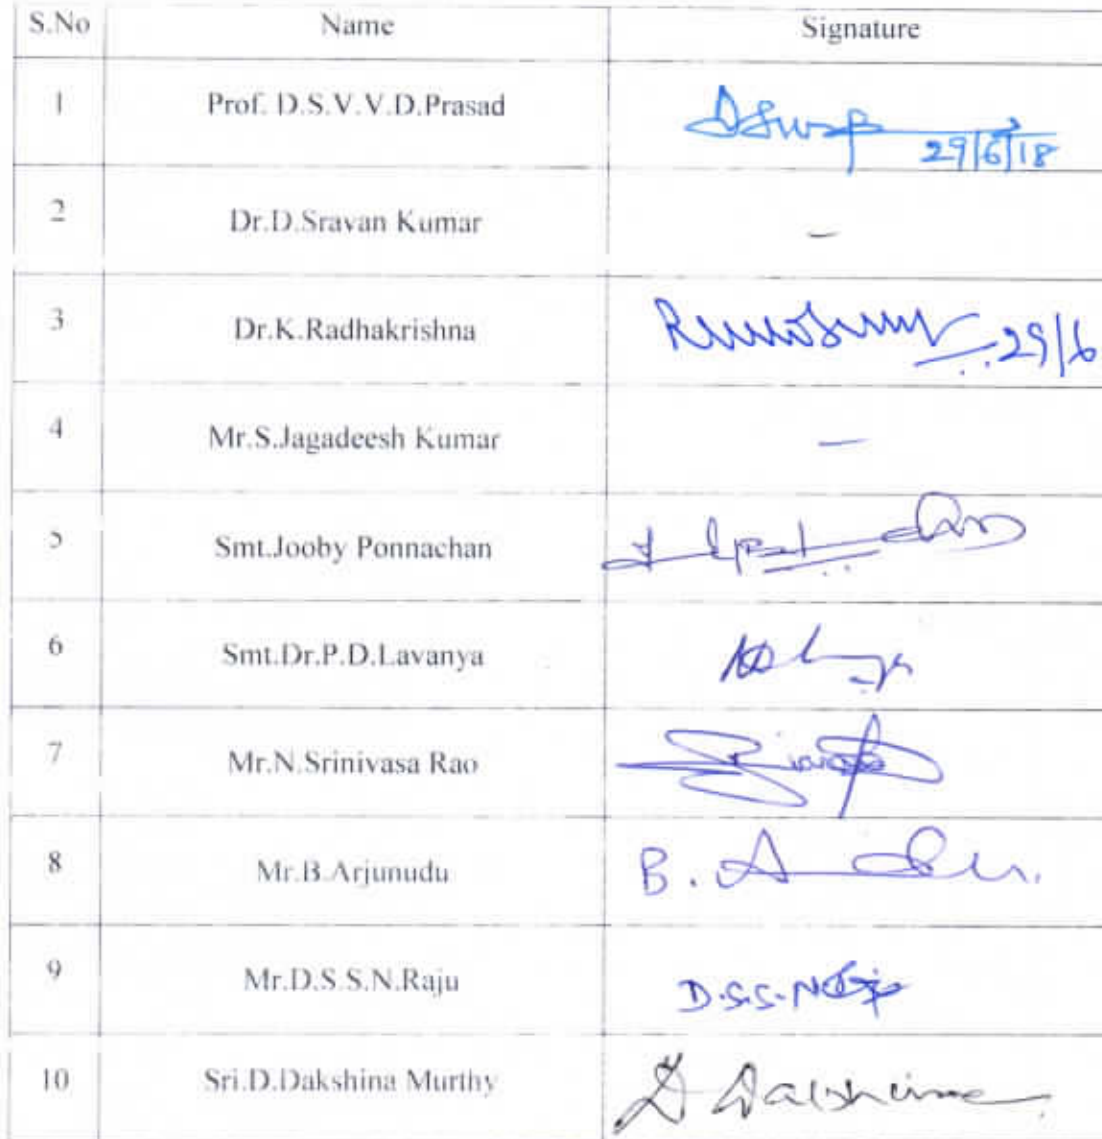 S.No Name Signature
1 Prof. D.S.V.V.D.Prasad
29/6/18
2 Dr.D.Sravan Kumar –
3 Dr.K.Radhakrishna 29/6
4 Mr.S.Jagadeesh Kumar –
5 Smt.Jooby Ponnachan
6 Smt.Dr.P.D.Lavanya
7 Mr.N.Srinivasa Rao
8 Mr.B.Arjunudu B. A
9 Mr.D.S.S.N.Raju D.S.S.N
10 Sri.D.Dakshina Murthy D Dakshina